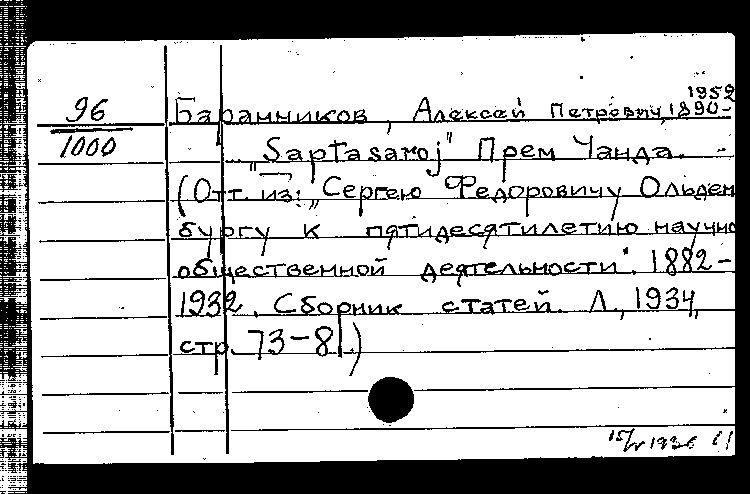 1952
96 Баранников, Алексей Петрович, 1890-
1000 „Saptasaroj" Прем Чанда.
(Отт. из: „Сергею Федоровичу Ольден
бургу к пятидесятилетию научно
общественной деятельности". 1882-
1932. Сборник статей. Л., 1934,
стр. 73-81.)